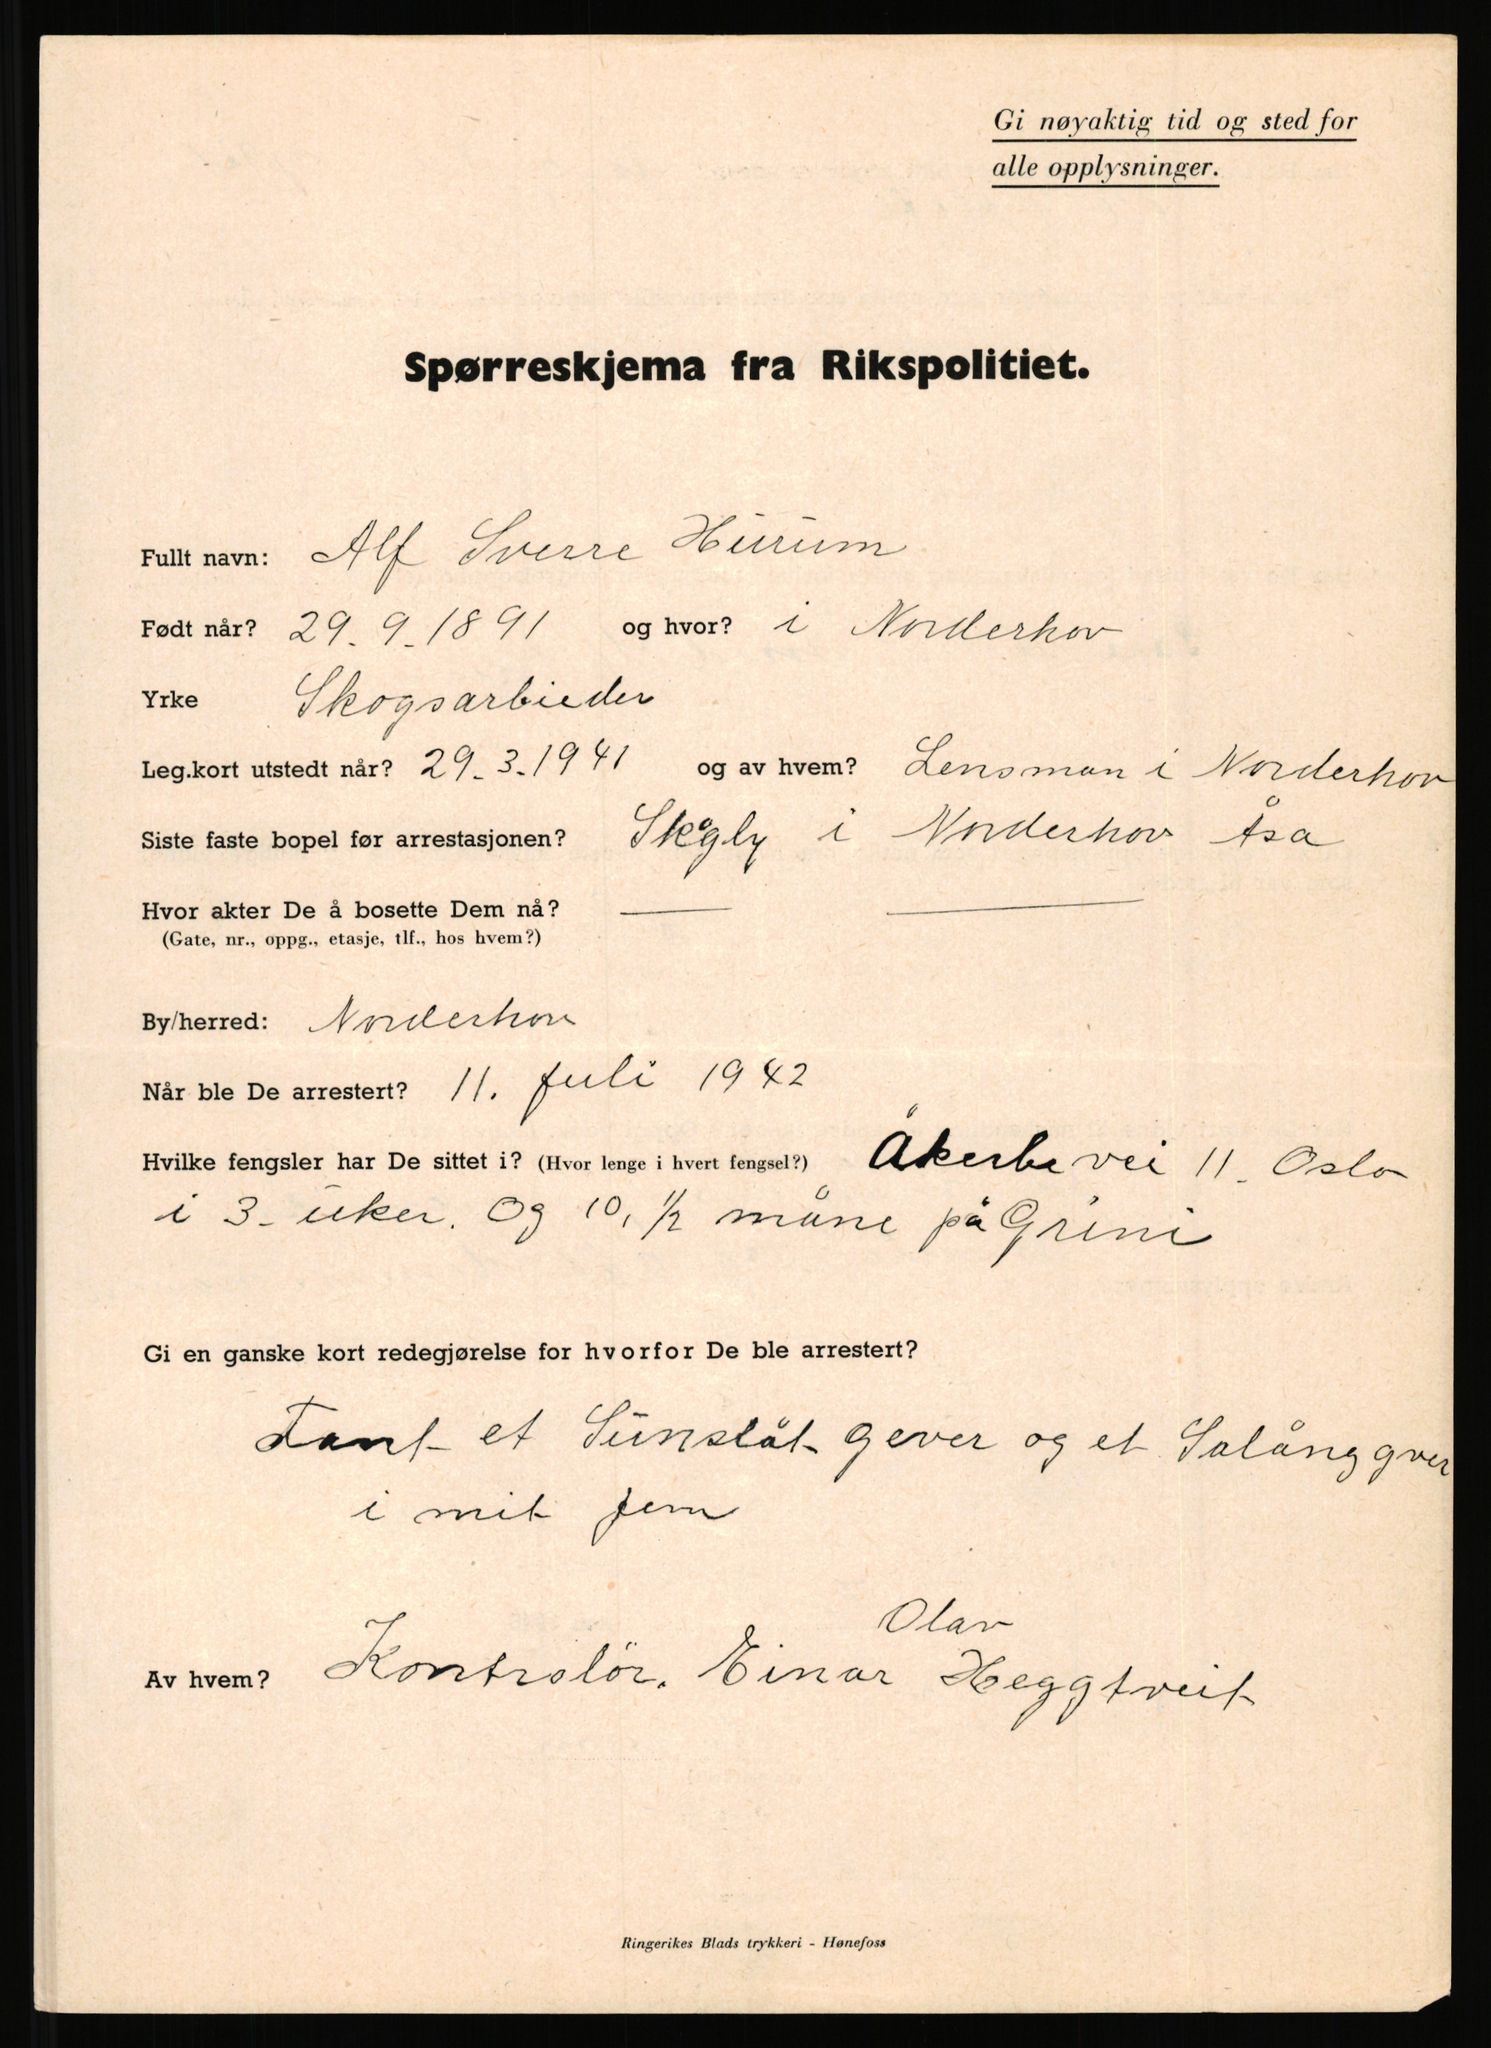 Gi nøyaktig tid og sted for
alle opplysninger.
Spørreskjema fra Rikspolitiet.
Fullt navn: Alf Sverre Hurum
Født når? 29-9-1891 og hvor? i Norderhov
Yrke Skogsarbieder
Leg.kort utstedt når? 29-3-1941 og av hvem? Lensman i Norderhov
Siste faste bopel før arrestasjonen? Skogly i Norderhov Åsa
Hvor akter De å bosette Dem nå? — —
(Gate, nr., oppg., etasje, tlf., hos hvem?)
By/herred: Norderhov
Når ble De arrestert? 11. Juli 1942
Hvilke fengsler har De sittet i? (Hvor lenge i hvert fengsel?) Åkerbe vei 11- Oslo
i 3- uker. Og 10, 1/2 måne på Grini
Gi en ganske kort redegjørelse for hvorfor De ble arrestert?
Fant et Gever og et Salånggver
i mit jem
Olav
Av hvem? Kontrolör. Einar Heggtveit
Ringerikes Blads trykkeri - Hønefoss